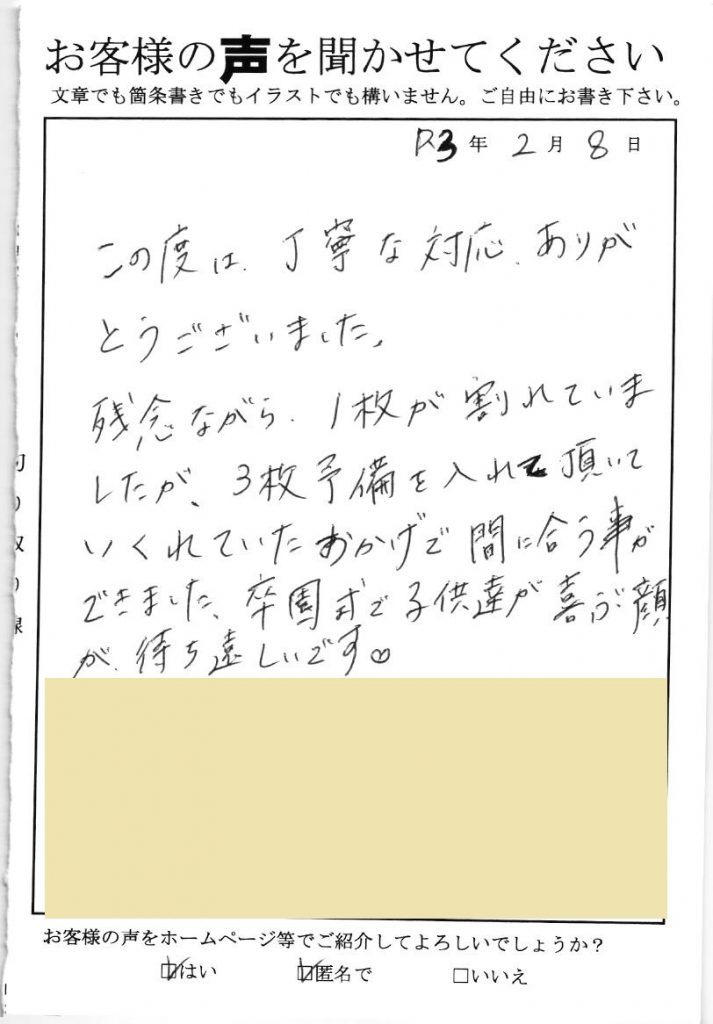 お客様の声を聞かせてください
文章でも箇条書きでもイラストでも構いません。ご自由にお書き下さい。
R3年 2月 8日
この度は、丁寧な対応、ありが
とうございました。
残念ながら、1枚が割れていま
したが、3枚予備を入れて頂いて
いくれていたおかげで間に合う事が
できました、卒園式で子供達が喜ぶ顔
が、待ち遠しいです♡
お客様の声をホームページ等でご紹介してよろしいでしょうか？
☑はい ☑匿名で □いいえ
取り線